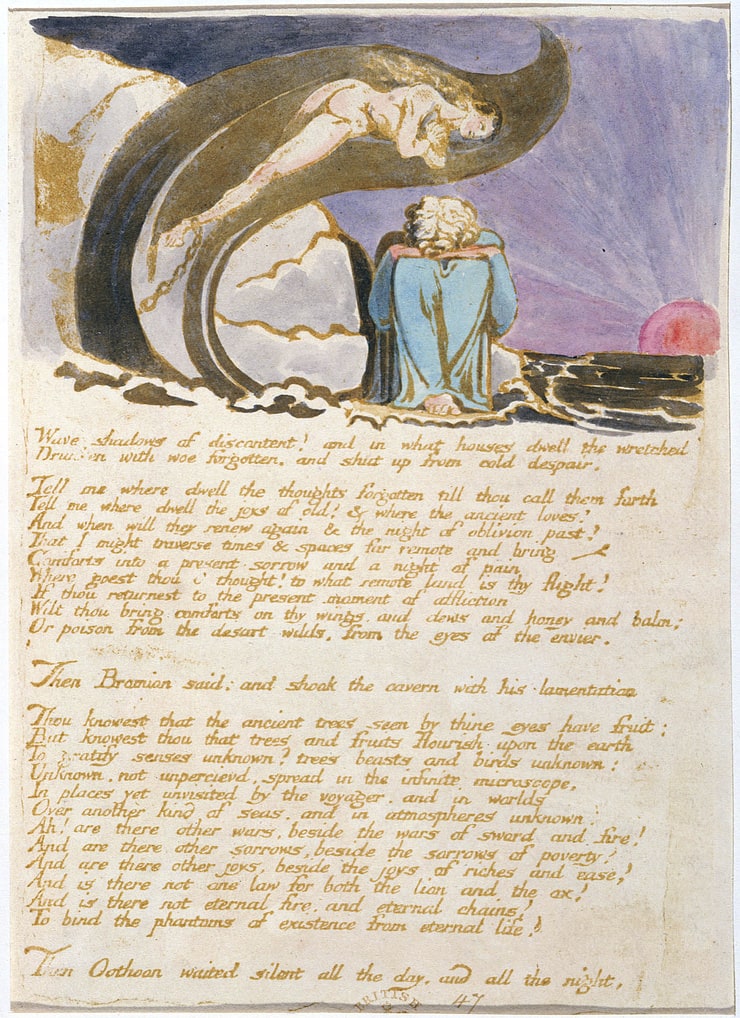 Wave shadows of discontent! and in what houses dwell the wretched
Drunken with woe forgotten, and shut up from cold despair.
Tell me where dwell the thoughts forgotten till thou call them forth
Tell me where dwell the joys of old! & where the ancient loves?
And when will they renew again & the night of oblivion past?
That I might traverse times & spaces far remote and bring
Comforts into a present sorrow and a night of pain
Where goest thou O thought! to what remote land is thy flight?
If thou returnest to the present moment of affliction
Wilt thou bring comforts on thy wings and dews and honey and balm;
Or poison from the desart wilds, from the eyes of the envier.
Then Bromion said: and shook the cavern with his lamentation
Thou knowest that the ancient trees seen by thine eyes have fruit;
But knowest thou that trees and fruits flourish upon the earth
To gratify senses unknown? trees beasts and birds unknown:
Unknown, not unpercievd, spread in the infinite microscope,
In places yet unvisited by the voyager, and in worlds
Over another kind of seas, and in atmospheres unknown:
Ah! are there other wars, beside the wars of sword and fire!
And are there other sorrows, beside the sorrows of poverty?
And are there other joys, beside the joys of riches and ease?
And is there not one law for both the lion and the ox?
And is there not eternal fire, and eternal chains?
To bind the phantoms of existence from eternal life?
Then Oothoon waited silent all the day, and all the night,
BRITISH
47